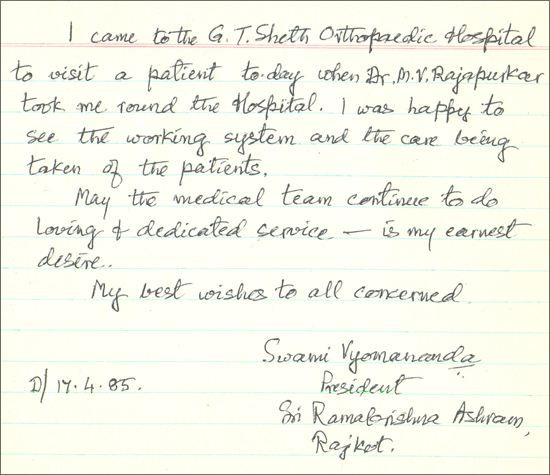 I came to the G. T. Sheth Orthopaedic Hospital
to visit a patient to-day when Dr. M. V. Rajapurkar
took me round the Hospital. I was happy to
see the working system and the care being
taken of the patients.
May the medical team continue to do
loving & dedicated service — is my earnest
desire.
My best wishes to all concerned
Swami Vyomananda
D/ 17.4.85.
President
Sri Ramakrishna Ashram,
Rajkot.